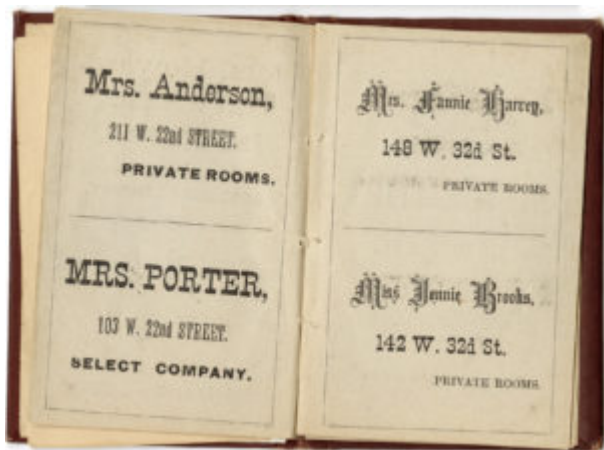 Mrs. Anderson,
211 W. 22nd STREET.
PRIVATE ROOMS.
MRS. PORTER,
103 W. 22nd STREET.
SELECT COMPANY.
Mrs. Fannie Harvey,
148 W. 32d St.
PRIVATE ROOMS.
Miss Jennie Brooks,
142 W. 32d St.
PRIVATE ROOMS.